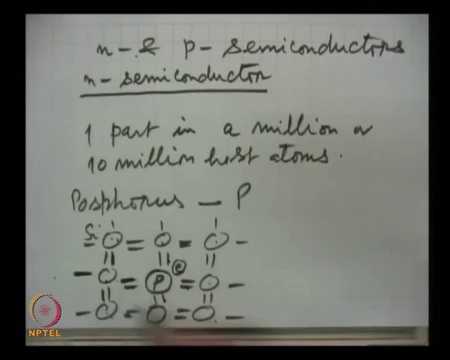 n- & p- semiconductors
n- semiconductor
1 part in a million or
10 million host atoms.
Posphorus — P
Si
P e
NPTEL